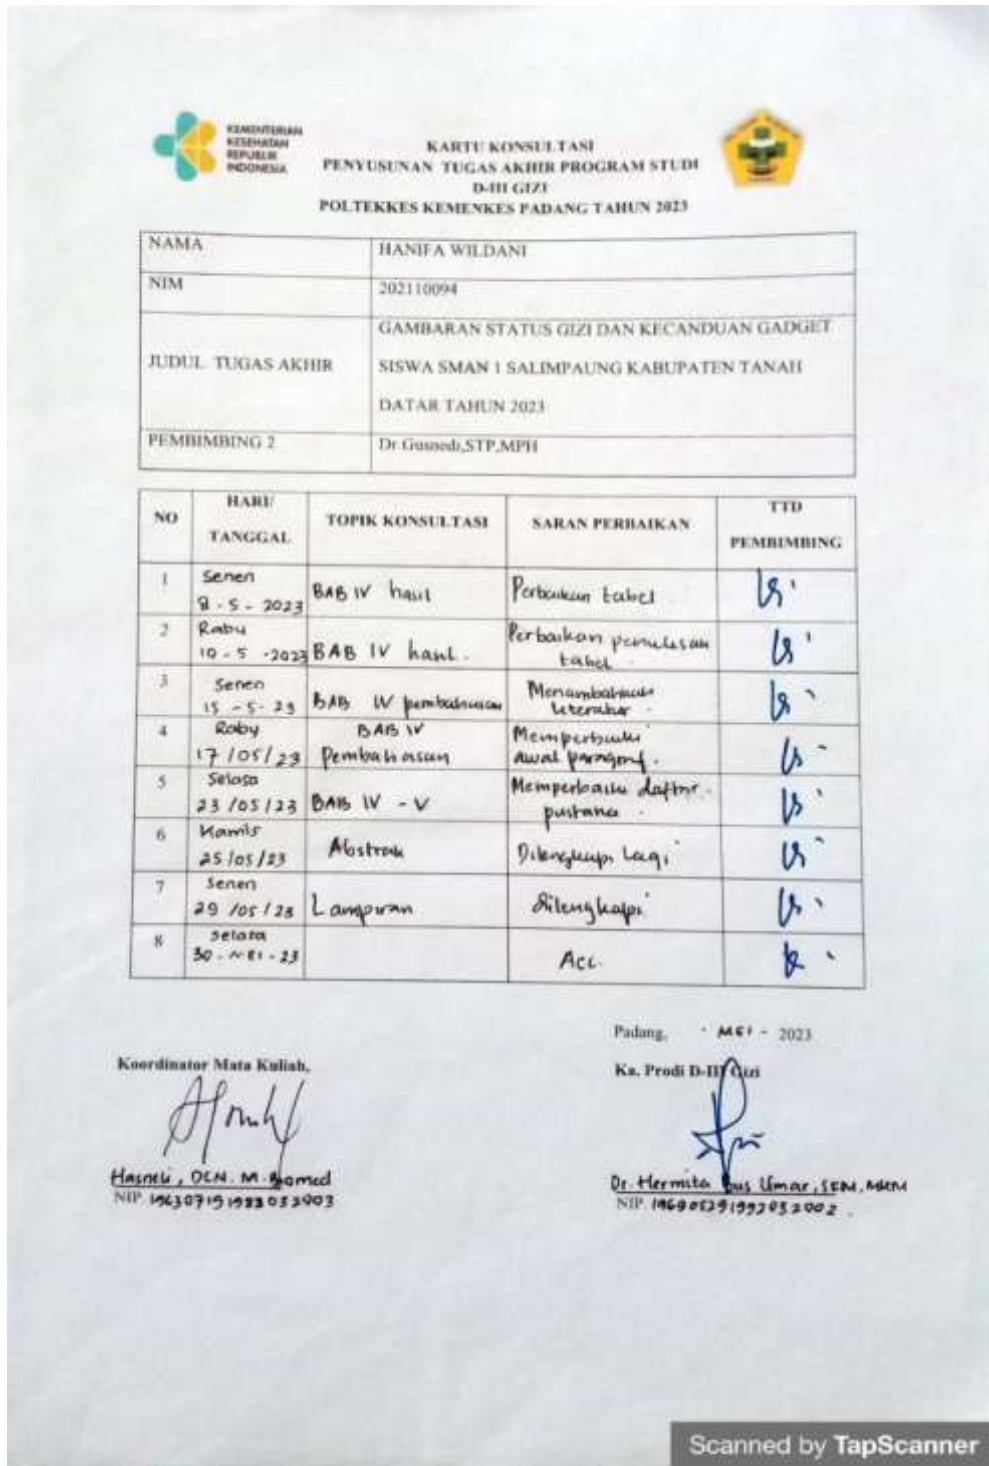 KEMENTERIAN
KESEHATAN
REPUBLIK
INDONESIA
KARTU KONSULTASI
PENYUSUNAN TUGAS AKHIR PROGRAM STUDI
D-III GIZI
POLTEKKES KEMENKES PADANG TAHUN 2023
NAMA HANIFA WILDANI
NIM 202110094
JUDUL TUGAS AKHIR GAMBARAN STATUS GIZI DAN KECANDUAN GADGET
SISWA SMAN 1 SALIMPAUNG KABUPATEN TANAH
DATAR TAHUN 2023
PEMBIMBING 2 Dr.Gusnedi,STP,MPH
NO HARI/ TANGGAL TOPIK KONSULTASI SARAN PERBAIKAN TTD PEMBIMBING
1 Senen 8-5-2023 BAB IV hasil Perbaikan tabel
2 Rabu 10-5-2023 BAB IV hasil. Perbaikan penulisan tabel.
3 Senen 15-5-23 BAB IV pembahasan Menambahkan literatur.
4 Raby 17/05/23 BAB IV Pembahasan Memperbaiki awal paragraf.
5 Selasa 23/05/23 BAB IV - V Memperbaiki daftar pustaka.
6 Kamis 25/05/23 Abstrak Dilengkapi lagi
7 Senen 29/05/23 Lampiran dilengkapi
8 Selasa 30-MEI-23 Acc.
Padang, MEI - 2023
Koordinator Mata Kuliah, Ka. Prodi D-III Gizi
Hasneli, DCN. M.Biomed
NIP. 196307191988032003
Dr. Hermita Bus Umar, SKM, MKM
NIP. 196905291992032002.
Scanned by TapScanner